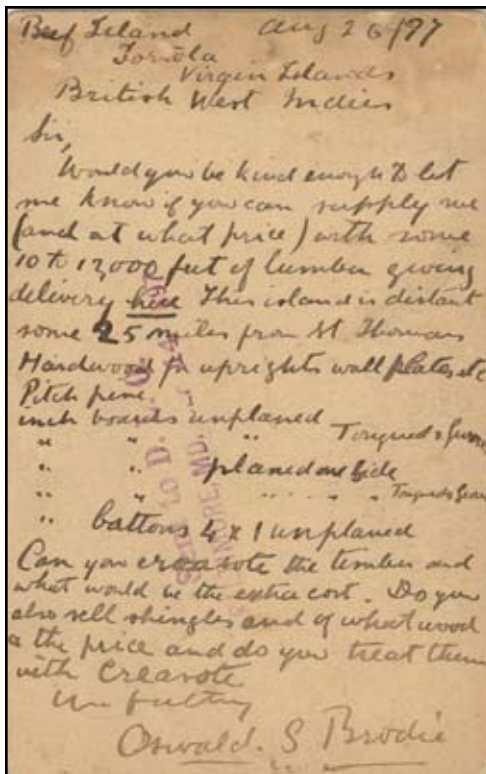 Beef Island Aug 26/97
Tortola
Virgin Islands
British West Indies
Sir,
Would you be kind enough to let
me know if you can supply me
(and at what price) with some
10 to 12,000 feet of lumber giving
delivery here This island is distant
some 25 miles from St Thomas
Hardwood for uprights wall plates etc
Pitch pine
inch boards unplaned
" " " Tongued &
" " planed one side
" " " " " Tongued &
" battons 4 x 1 unplaned
Can you creasote the timber and
what would be the extra cost. Do you
also sell shingles and of what wood
& the price and do you treat them
with Creasote
Oswald. S Brodie